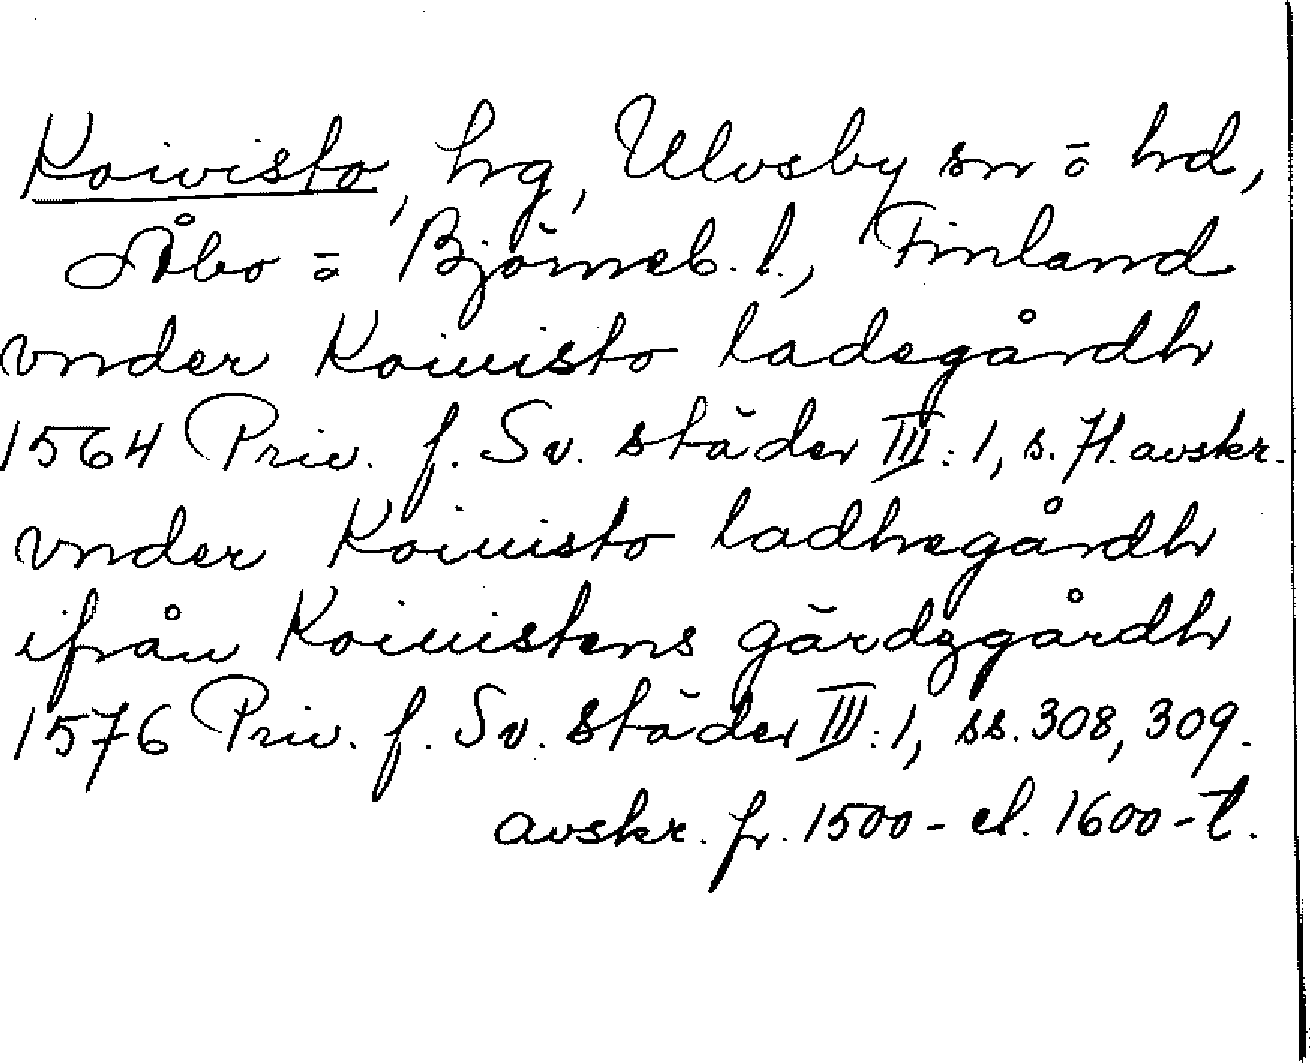 Koivisto, hrg, Ulvsby sn o hd,
Åbo o Björneb. l., Finland
vnder Koiuisto ladegårdh
1564 Priv. f. Sv. städer III:1, s. 71. avskr.
vnder Koiuisto ladhegårdh
ifrån Koiuistens gärdzgårdh
1576 Priv. f. Sv. städer III:1, ss. 308, 309.
avskr. fr. 1500- el. 1600-t.